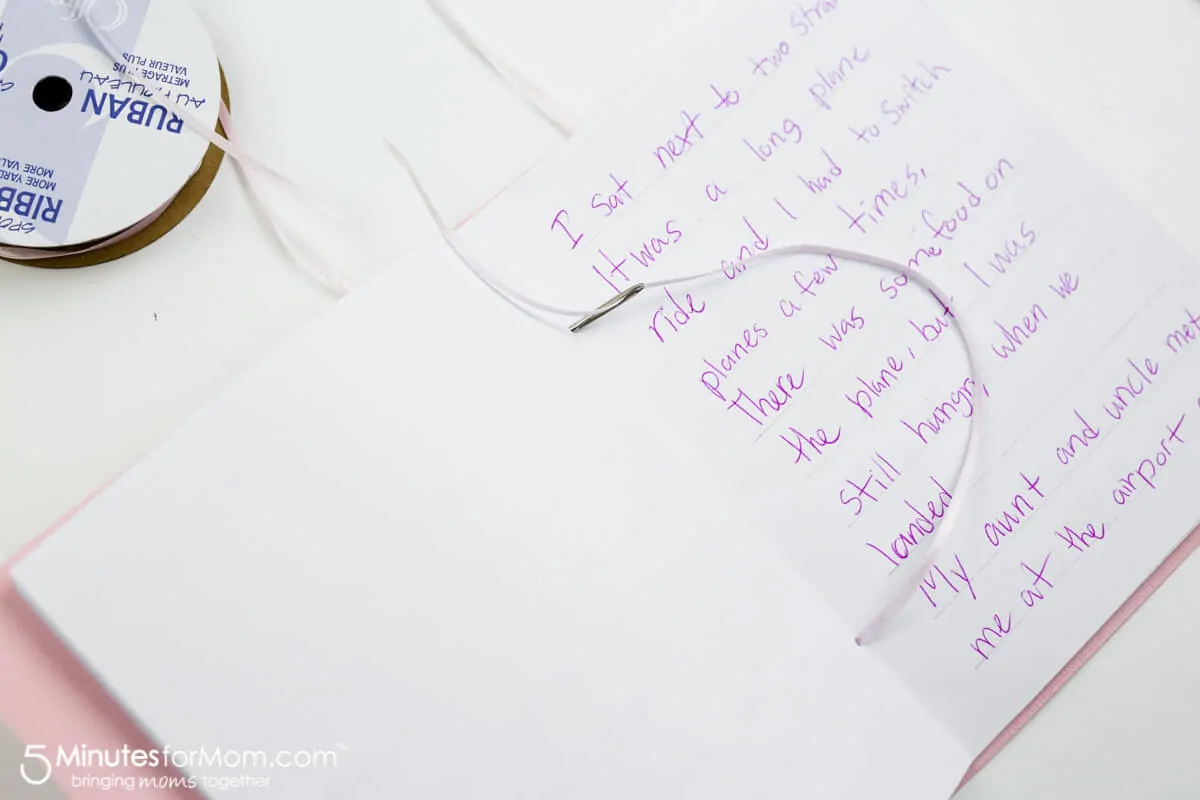 RUBAN
AU ROULEAU
METRAGE PLUS
VALEUR PLUS
MORE YARD
MORE VALU
RIBB
SPO
I sat next to two stra
It was a long plane
ride and I had to switch
planes a few times,
There was some food on
the plane, but I was
still hungry, when we
landed
My aunt and uncle met
me at the airport
5 MinutesforMom.com™
bringing moms together